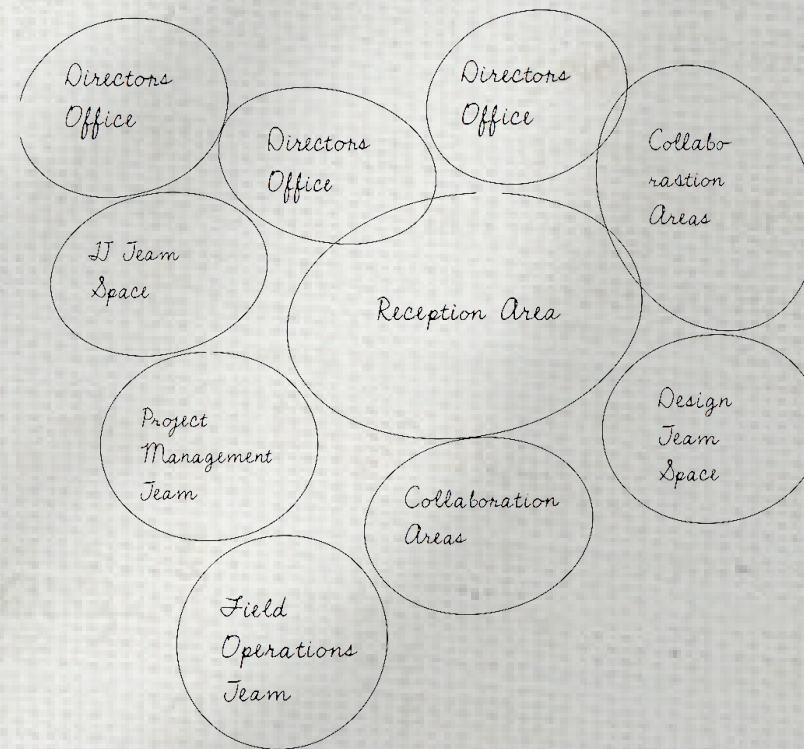 Directors
Office
Directors
Office
Directors
Office
Collabo-
rastion
Areas
IT Team
Space
Reception Area
Project
Management
Team
Collaboration
Areas
Design
Team
Space
Field
Operations
Team